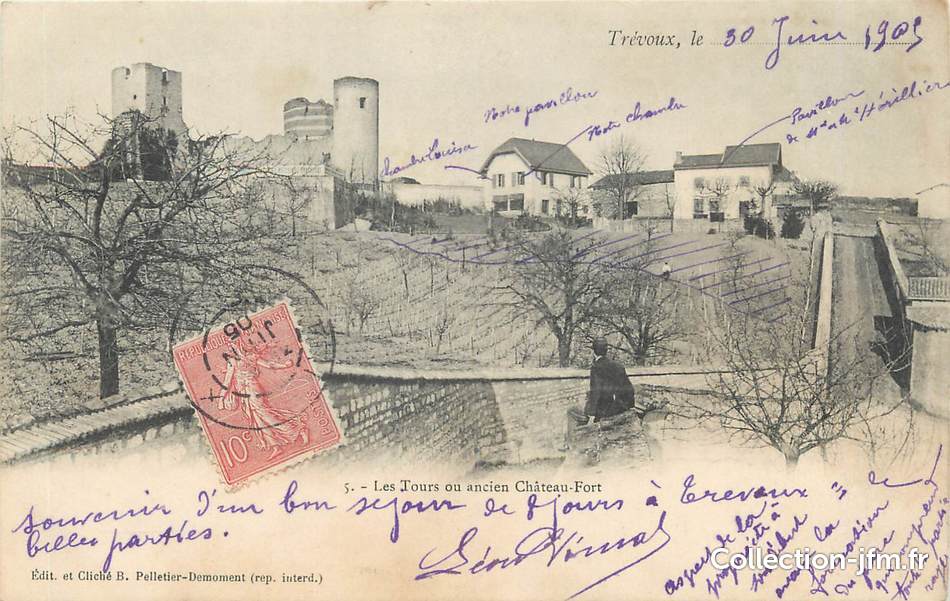 Trévoux, le 30 Juin 1905
Notre pavillon
Notre chambre
Pavillon
de Mr & Me Hérillier
chambre Louisa
JUIN
05
REPUBLIQUE FRANÇAISE
POSTES
10c
5. - Les Tours ou ancien Château-Fort
Souvenir d'un bon séjour de 8 jours à Trevoux & de
belles parties.
Léon Vimal
aspect de la
propriété à
avant la
formation
du parc
Édit. et Cliché B. Pelletier-Demoment (rep. interd.)
Collection-jfm.fr